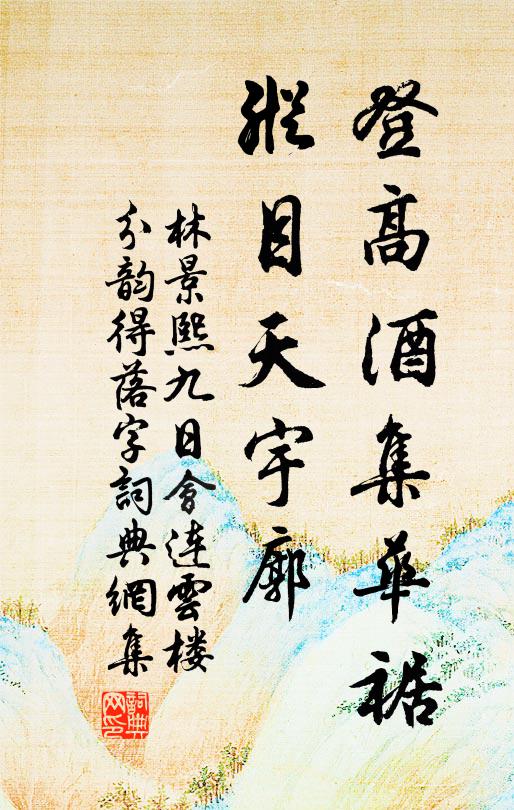 登高酒集華裾
縱目天宇廓
林景熙九日會连雲楼
分韵得落字詞典網集
詞典网印